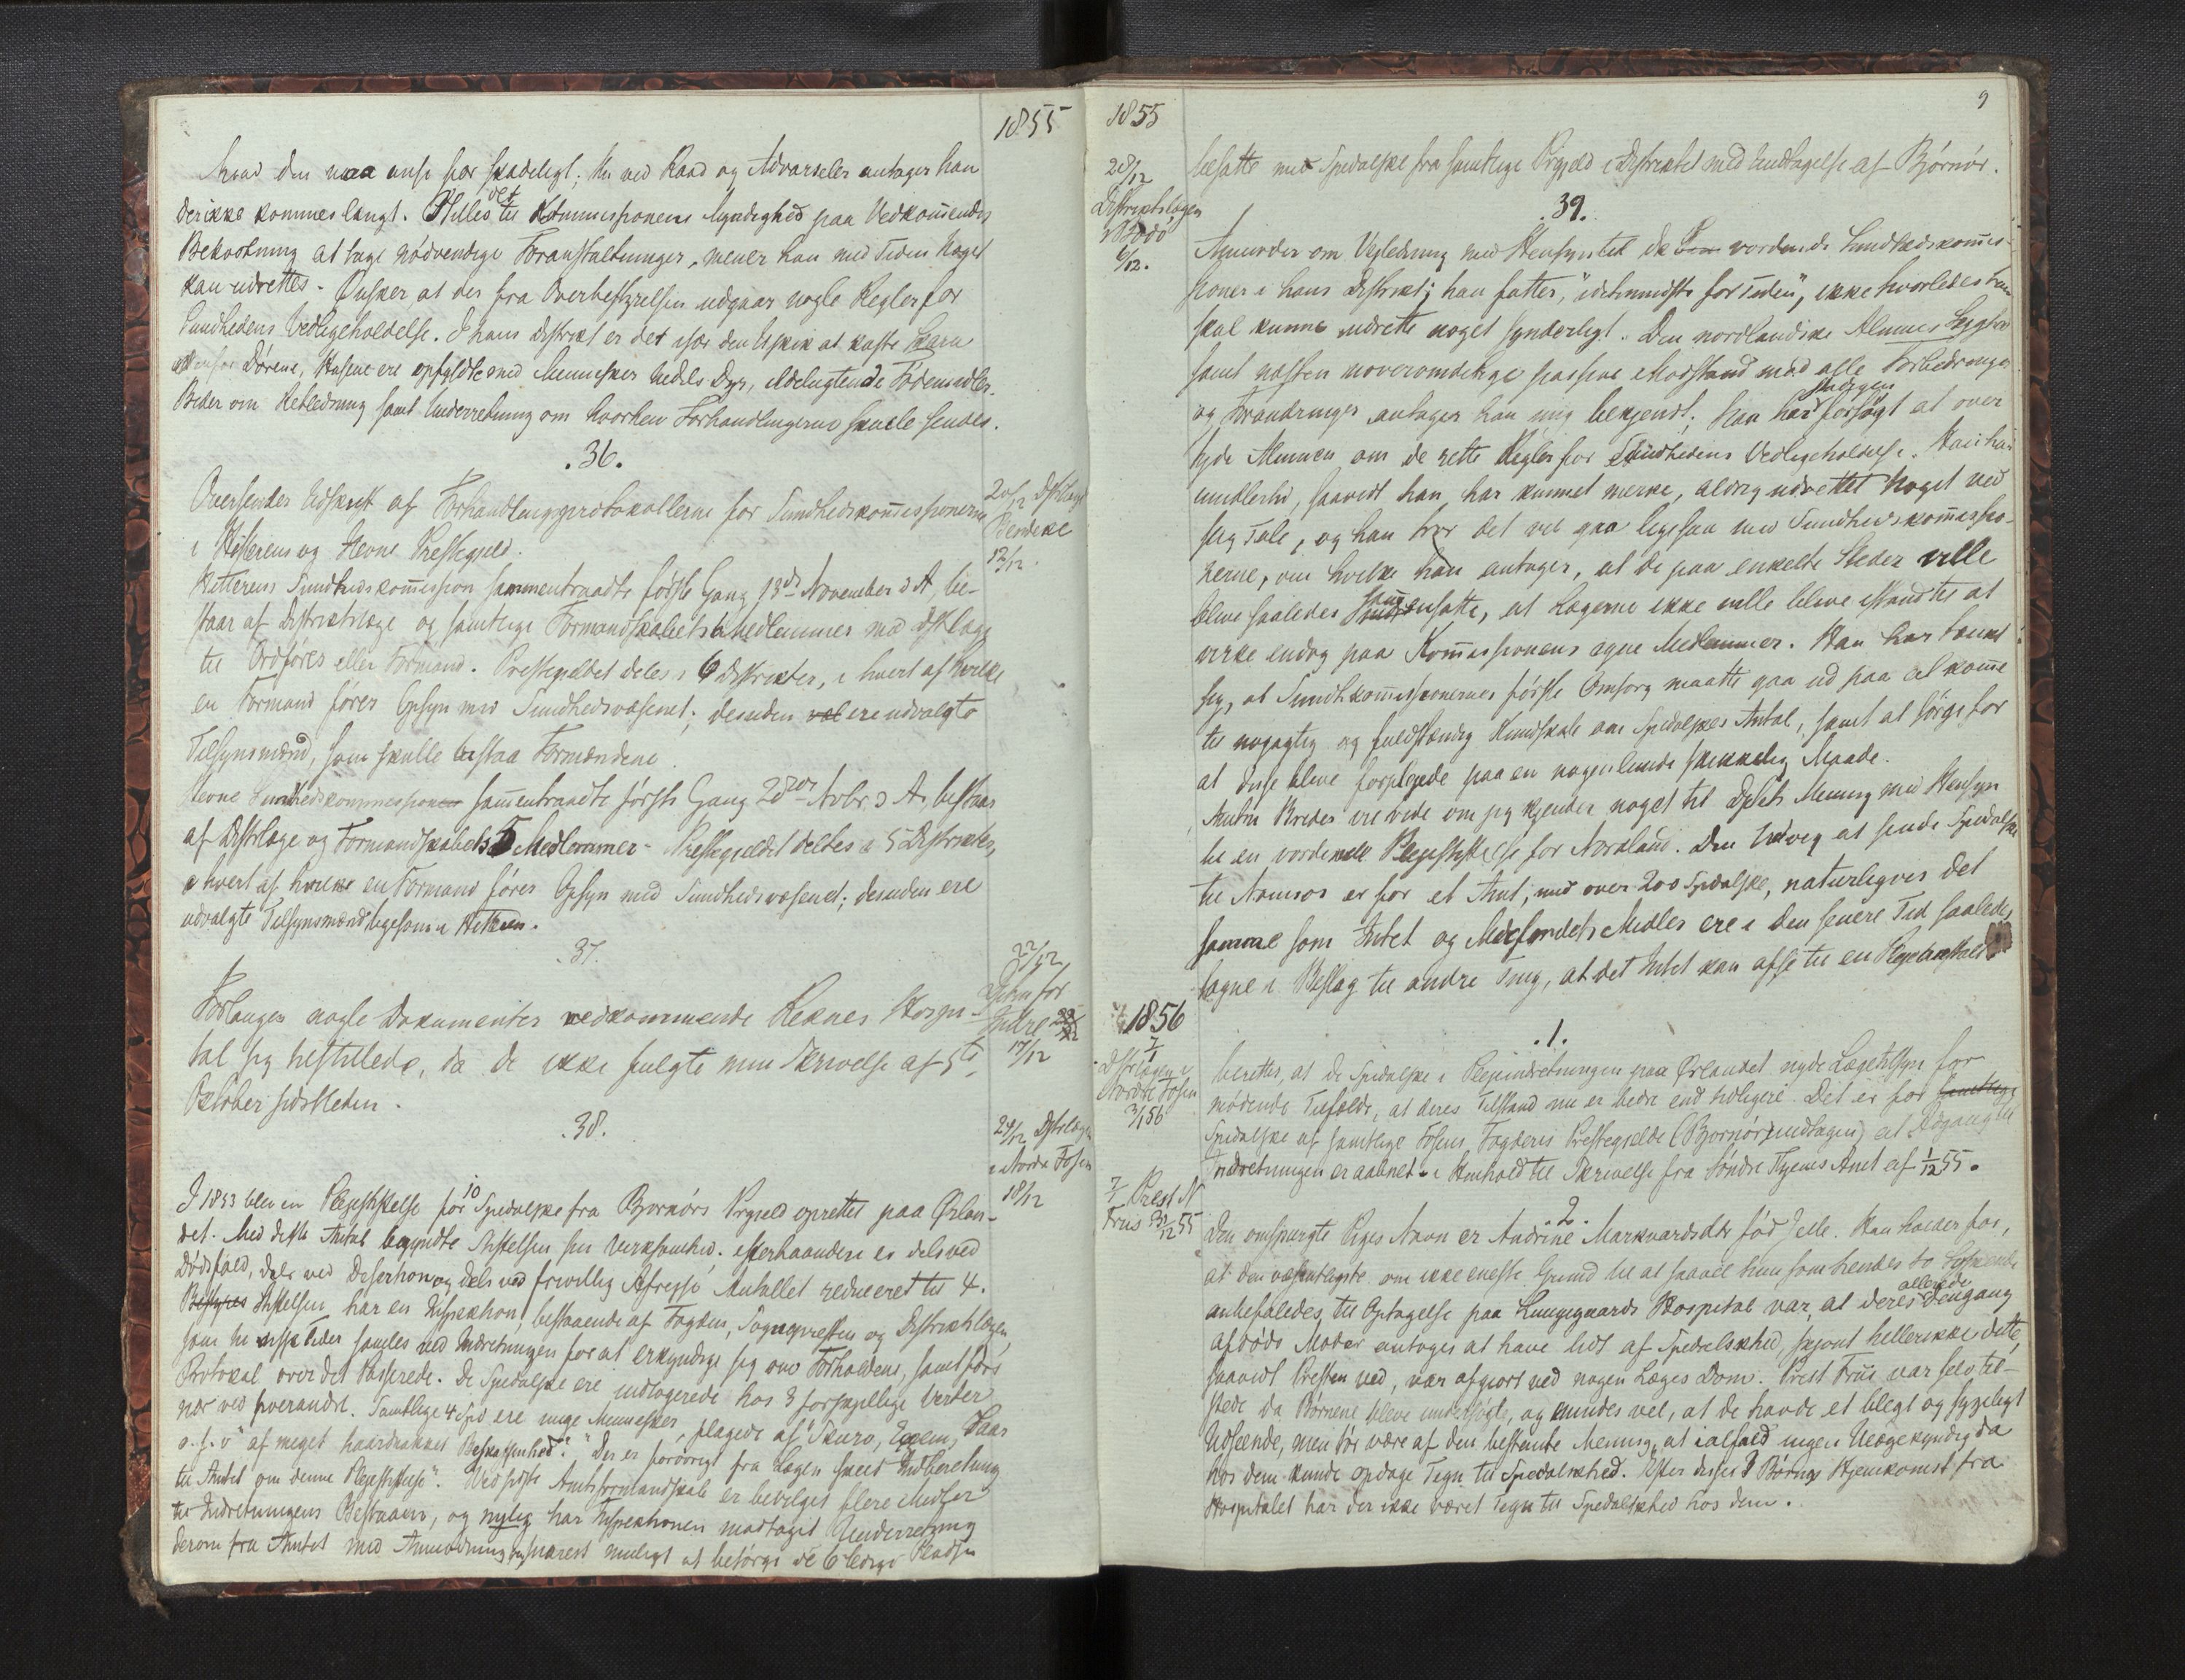 1855
hvad den maa anse for skadeligt; thi ved Raad og Advarsler antager han
der ikke kommes langt. Stilles det til Kommissionens Myndighed paa Vedkom̄endes
Bekostning at tage nödvendige Foranstaltninger, mener han med Tiden Noget
kan udrettes. Önsker at der fra Overbestyrelsen udgaar nogle Regler for
Sundhedens Vedligeholdelse. I hans Distrikt er det især den Uskik at kaste Skarn
udenfor Dørene, Husene ere opfyldte med Mennesker tildels Dyr, ildelugtende Fødemidler.
Beder om Veiledning samt Underretning om hvorhen Forhandlingerne skulle sendes.
.36.
20/12 Dstrlæge
Bendeke
13/12.
Oversender Udskrift af Forhandlingsprotokollerne for Sundhedskom̄issionerne
i Hitterens og Hevne Prestegjeld.
Hitterens Sundhedskom̄ission sammentraadte förste Gang 13de November d A, be-
staar af Distriktslæge og samtlige Formandskabets 6 Medlemmer med Dstrlæge
til Ordförer eller Formand. Prestegjeldet deles i 6 Distrikter, i hvert af hvilke
en Formand förer Opsyn med Sundhedsvæsenet; desuden val ere udvalgte
Tilsynsmænd, som skulle bistaa Formændene.
Hevne Sundhedskommission sam̄entraadte förste Gang 28de Novbr. d A. bestaar
af Dstrlæge og Formandskabets 5 Medlemmer - Prestegjeldet deltes i 5 Distrikter,
i hvert af hvilke en Formand förer Opsyn med Sundhedsvæsenet; desuden ere
udvalgte Tilsynsmænd ligesom i Hitteren.
.37.
22/12
Dpm for
Indre 22/12
17/12
Forlanger nogle Dokumenter vedkommende Reknes Hospi-
tal sig tilstillede, da de ikke fulgte min Skrivelse af 5te
Oktober sidstleden.
.38.
24/12 Dstrlægen
i Nordre Fosen
18/12
I 1853 blev en Pleiestiftelse for 10 Spedalske fra Bjørnørs Prgjeld oprettet paa Ørlan-
det. Med dette Antal begyndte Stiftelsen sin Virksomhed; efterhaanden er dels ved
Dödsfald, dels ved Desertion og dels ved frivillig Afreise Antallet reduceret til 4.
Bestyres Stiftelsen har en Inspektion, bestaaende af Fogden, Sognepresten og Distriktslægen,
som til visse Tider samles ved Indretningen for at erkyndige sig om Forholdene, samt förer
Protokol over det Passerede. De Spedalske ere indlogerede hos 3 forskjellige Verter
nær ved hverandre. Samtlige 4 Spd ere unge Mennesker, plagede af Skurv, Exem, Saar
o. s. v "af meget haardnakket Beskaffenhed". "Der er forövrigt fra Lægen skeet Indberetning
til Amtet om denne Pleiestiftelse". Ved sidste Amtsformandskab er bevilget flere Midler
til Indretningens Bestaaen, og nylig har Inspektionen modtaget Underretning
derom fra Amtet med Anmodning om snarest muligt at besörge de 6 ledige Pladse
1855
9
besatte med Spedalske fra samtlige Prgjeld i Distriktet med Undtagelse af Bjørnør.
.39.
28/12
Distriktslægen
i Bodö
6/12.
Anmoder om Veiledning med Hensyn til de vordende Sundhedskom̄is-
sioner i hans Distrikt; han fatter, "idetmindste for Tiden", ikke hvorledes han
skal kunne udrette noget synderligt. Den nordlandske Almues Seighed
samt næsten uovervindelige passive Modstand mod alle Forbedringer
og Forandringer antager han mig bekjendt; han har stadigen forsögt at over
tyde Almuen om de rette Regler for Sundhedens Vedligeholdelse. Han har
imidlertid, saavidt han har kunnet merke, aldrig udrettet Noget ved
sig Tale, og han tror det vil gaa ligesaa med Sundhedskom̄issio-
nerne, om hvilke han antager, at de paa enkelte Steder ville
blive saaledes sam̄ensatte, at Lægerne ikke ville blive istand til at
virke endog paa Kom̄issionens egne Medlemmer. Han har tænkt
sig, at Sundhkom̄issionernes förste Omsorg maatte gaa ud paa at kom̄e
til nöiagtig og fuldstændig Kundskab om Spedalskes Antal, samt at sörge for
at disse bleve forpleiede paa en nogenlunde skikkelig Maade.
til en vordende Pleiestiftelse for Nordland. Den Udvei at sende Spedalske
til Namsos er for et Amt, med over 200 Spedalske, naturligvis det
samme som Intet og Medfondets Midler ere i den senere Tid saaledes
tagne i Beslag til andre Ting, at det Intet kan afse til en Pleieanstalt
1856
.1.
7/1
Dstrlægen i
Nordre Fosen
3/1 56
beretter, at de Spedalske i Pleieindretningen paa Ørlandet nyde Lægetilsyn for
mødende Tilfælde, at deres Tilstand nu er bedre end tidligere. Det er for samtlige
Spedalske af samtlige Fosens Fogderis Prestegjelde (Bjørnør undtagen) at Adgang til
Indretningen er aabnet - i Henhold til Skrivelse fra Söndre Thjems Amt af 1/12 55.
.2.
7/1 Prest N
Friis 31/12 55
Den omspurgte Piges Navn er Andrine Markvardsdtr föd Jelle. Han holder for,
at den væsentligste om ikke eneste Grund til at saavel hun som hendes to Söskende
anbefaledes til Optagelse paa Lungegaards Hospital var, at deres allerede dengang
afdöde Moder antoges at have lidt af Spedalskhed, skjönt heller ikke dette,
saavidt Presten ved, var afgjort ved nogen Læges Dom. Prest Friis var selv til-
stede da Börnene bleve undersögte, og mindes vel, at de havde et blegt og sygeligt
Udseende, men tör være af den bestemte Mening, at ialfald ingen Ulægekyndig da
hos dem kunde opdage Tegn til Spedalskhed. Efter disse 3 Börns Hjemkomst fra
Hospitalet har der ikke været Tegn til Spedalskhed hos dem.